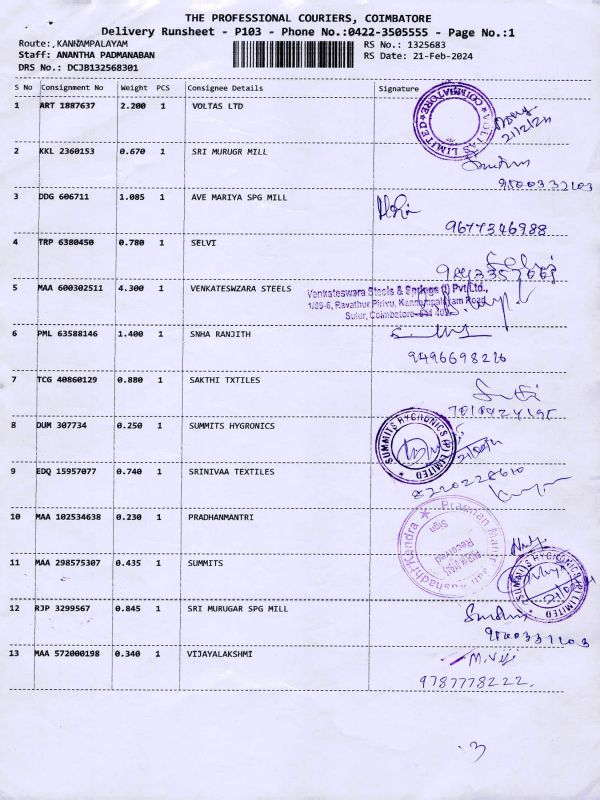 THE PROFESSIONAL COURIERS, COIMBATORE
Delivery Runsheet - P103 - Phone No.:0422-3505555 - Page No.:1
Route:,KANNAMPALAYAM RS No.: 1325683
Staff: ANANTHA PADMANABAN RS Date: 21-Feb-2024
DRS No.: DCJB132568301
S No Consignment No Weight PCS Consignee Details Signature
1 ART 1887637 2.200 1 VOLTAS LTD
VOLTAS LIMITED COIMBATORE
21/2/24
2 KKL 2360153 0.670 1 SRI MURUGR MILL
3 DDG 606711 1.085 1 AVE MARIYA SPG MILL
9677346988
4 TRP 6380450 0.780 1 SELVI
5 MAA 600302511 4.300 1 VENKATESWZARA STEELS
Venkateswara Steels & Springs (I) Pvt Ltd.,
1/89-6, Ravathur Pirivu, Kannampalayam Road,
Sulur, Coimbatore-641 402.
6 PML 63588146 1.400 1 SNHA RANJITH
9496698216
7 TCG 40860129 0.880 1 SAKTHI TXTILES
8 DUM 307734 0.250 1 SUMMITS HYGRONICS
SUMMITS HYGRONICS (P) LIMITED
9 EDQ 15957077 0.740 1 SRINIVAA TEXTILES
8220228610
10 MAA 102534638 0.230 1 PRADHANMANTRI
Kendra
Received
Sign
11 MAA 298575307 0.435 1 SUMMITS
SUMMITS HYGRONICS (P) LIMITED
12 RJP 3299567 0.845 1 SRI MURUGAR SPG MILL
13 MAA 572000198 0.340 1 VIJAYALAKSHMI
M.Viji
9787778222.
3